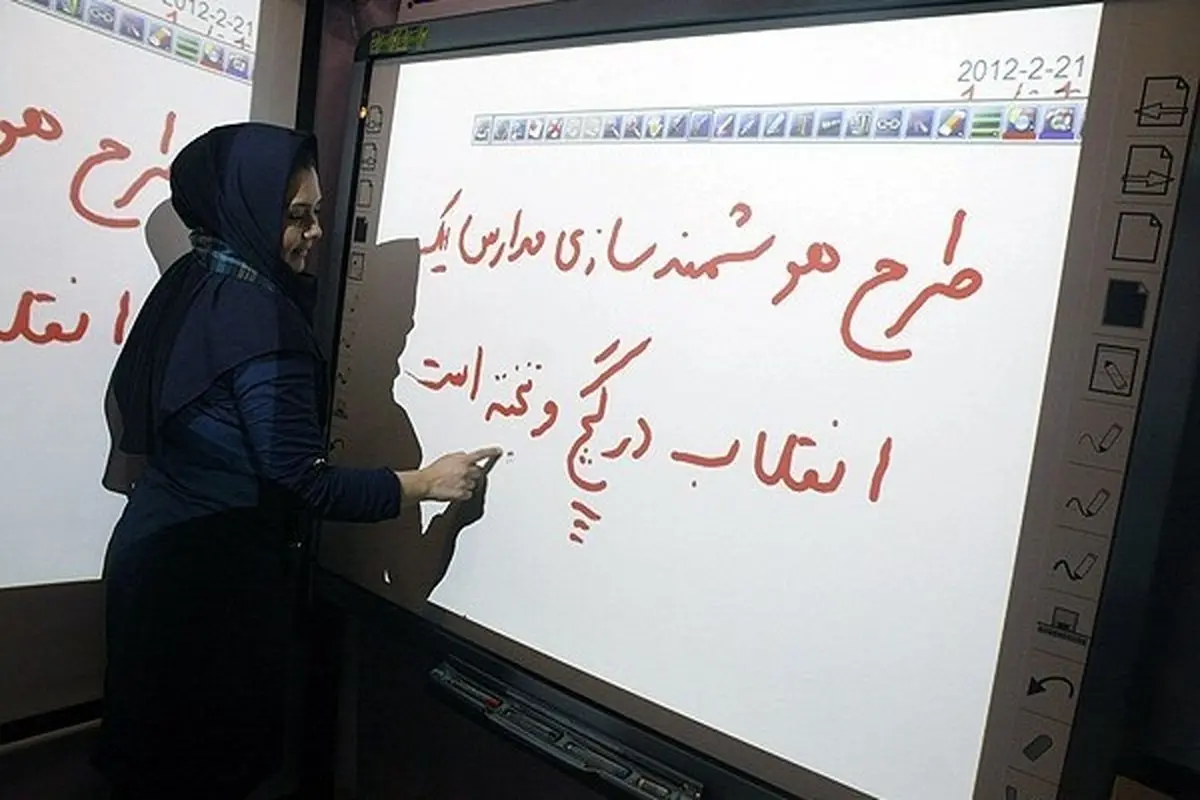 2012-2-21
طرح هوشمند سازی مدارس یک
انقلاب در گچ و تخته است
2012-2-21
طرح هو
انقلا